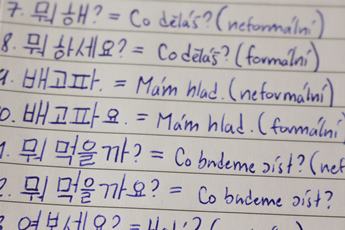 7. 뭐 해? = Co děláš? (neformální)
8. 뭐 하세요? = Co děláš? (formální)
배고파. = Mám hlad. (neformální)
0. 배고파요. = Mám hlad. (formální)
1. 뭐 먹을까? = Co budeme jíst? (nef
2. 뭐 먹을까요? = Co budeme jíst?
여보세요? =